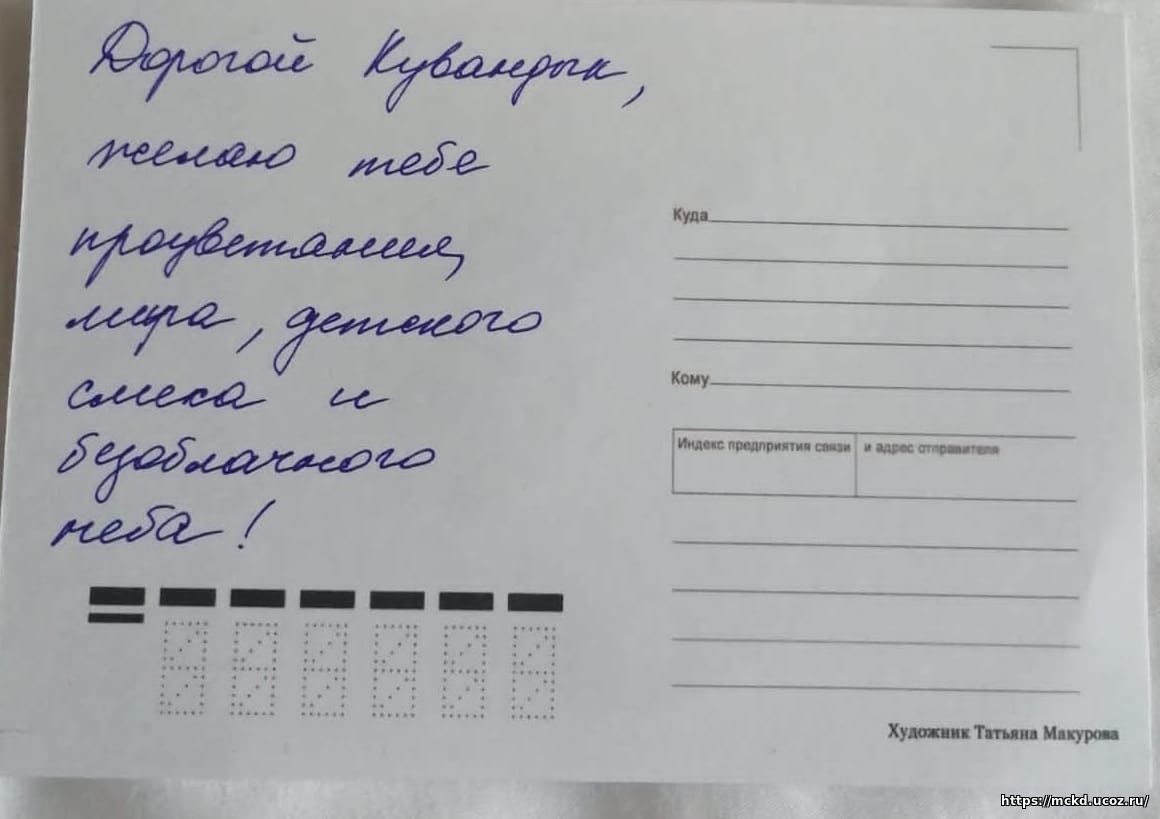 Дорогой Кувандык,
желаю тебе
процветания,
мира, детского
смеха и
безоблачного
неба!
Куда
Кому
Индекс предприятия связи и адрес отправителя
Художник Татьяна Макурова
https://mckd.ucoz.ru/